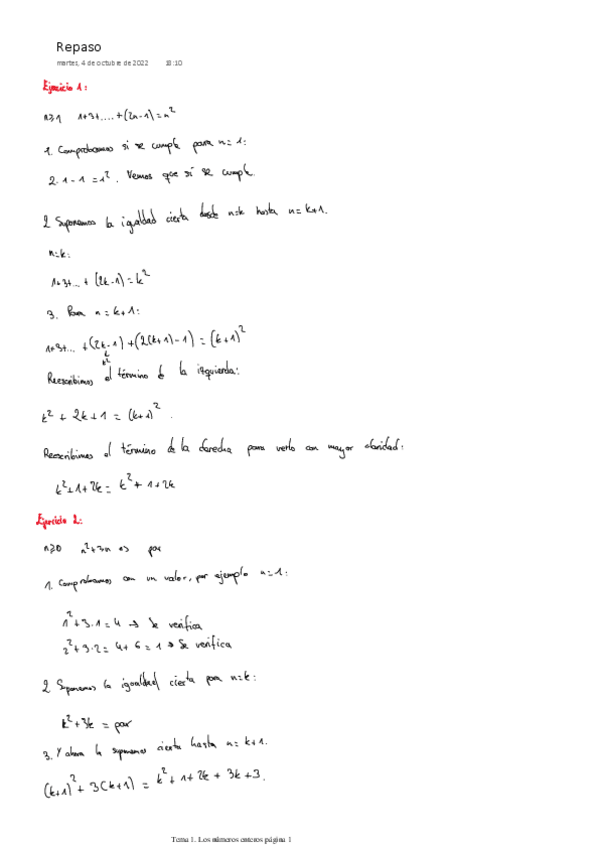 Repaso
martes, 4 de octubre de 2022 18:10
Ejercicio 1:
n≥1 1+3+....+(2n-1)=n²
1. Comprobamos si se cumple para n=1:
2·1-1=1². Vemos que sí se cumple.
2 Suponemos la igualdad cierta desde n=k hasta n=k+1.
n=k:
1+3+...+(2k-1)=k²
3. Para n=k+1:
1+3+... +(2k-1)+(2(k+1)-1)=(k+1)²
Reescribimos el término de la izquierda:
k²+2k+1=(k+1)².
Reescribimos el término de la derecha para verlo con mayor claridad:
k²+1+2k=k²+1+2k
Ejercicio 2:
n≥0 n²+3n es par
1. Comprobamos con un valor, por ejemplo n=1:
1²+3·1=4 → Se verifica
2²+3·2=4+6=1 → Se verifica
2 Suponemos la igualdad cierta para n=k:
k²+3k=par
3. Y ahora la suponemos cierta hasta n=k+1.
(k+1)²+3(k+1)=k²+1+2k+3k+3.
Tema 1. Los números enteros página 1